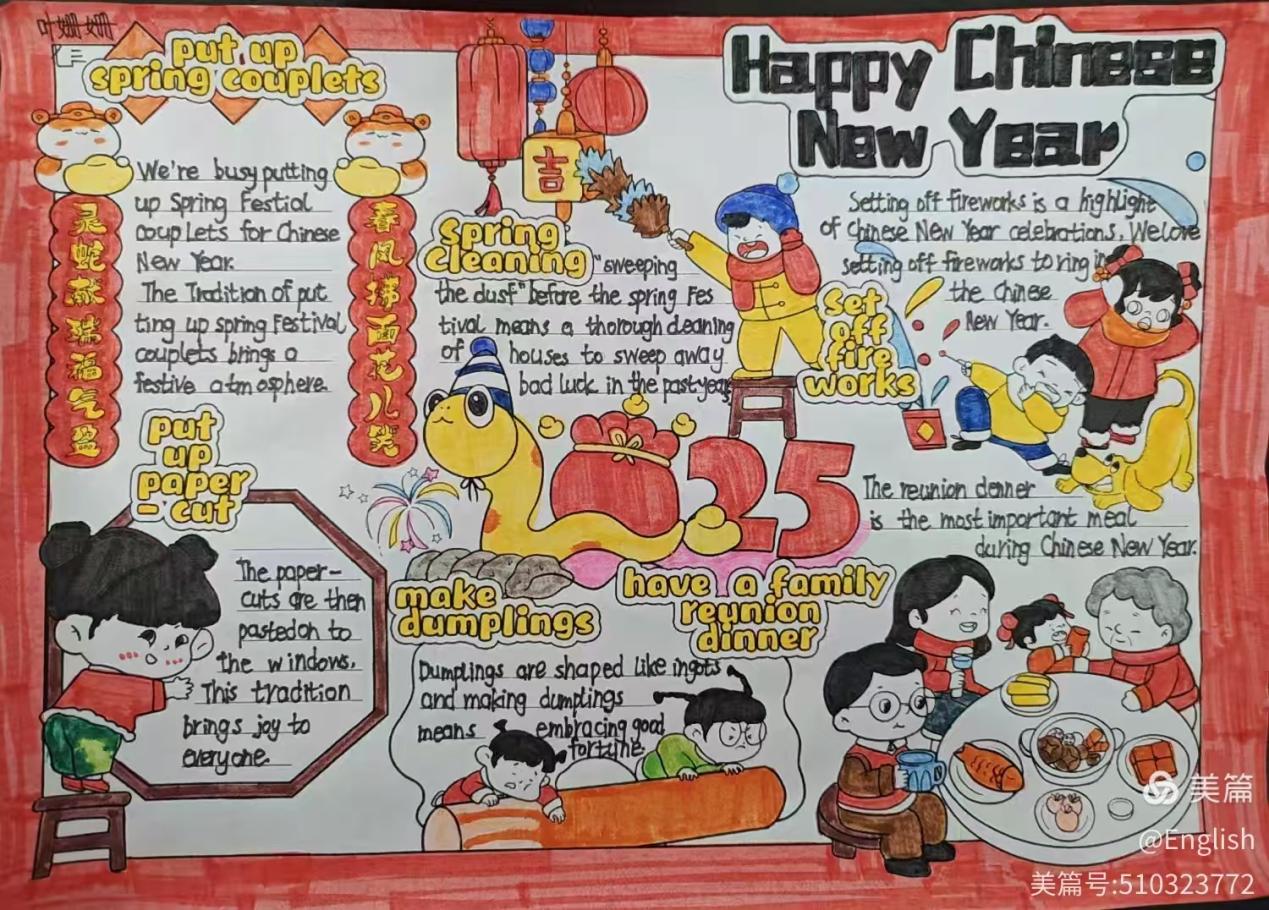 叶姗姗
put up
spring couplets
We're busy putting
up Spring Festial
coupLets for Chinese
New Year.
The Tradition of put
ting up spring Festival
couplets brings a
festive atmosphere.
灵蛇献瑞福气盈
春风拂面花儿笑
吉
Happy Chinese
New Year
Spring
cleaning
"sweeping
the dust" before the spring Fes
tival means a thorough cleaning
of houses to sweep away
bad luck in the past year
Setting off fireworks is a highlight
of Chinese New Year celebrations. We love
setting off fireworks to ring in
the Chinese
New Year.
Set
off
fire
works
25
put
up
paper
-cut
The paper-
cuts are then
pasted on to
the windows.
This tradition
brings joy to
everyone.
make
dumplings
Dumplings are shaped like ingots
and making dumplings
means embracing good
fortune.
have a family
reunion
dinner
The reunion denner
is the most important meal
during Chinese New Year.
美篇
@English
美篇号:510323772